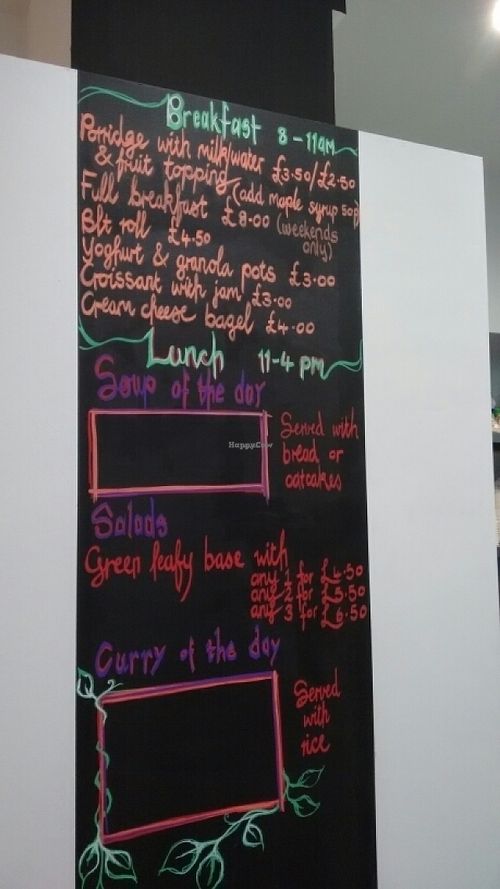 Breakfast 8-11am
Porridge with milk/water £3.50/£2.50
& fruit topping (add maple syrup 50p)
Full breakfast £8.00 (weekends only)
Blt roll £4.50
Yoghurt & granola pots £3.00
Croissant with jam £3.00
Cream cheese bagel £4.00
Lunch 11-4 pm
Soup of the day
Served with
bread or
oatcakes
HappyCow
Salads
Green leafy base with
any 1 for £4.50
any 2 for £5.50
any 3 for £6.50
Curry of the day
Served
with
rice